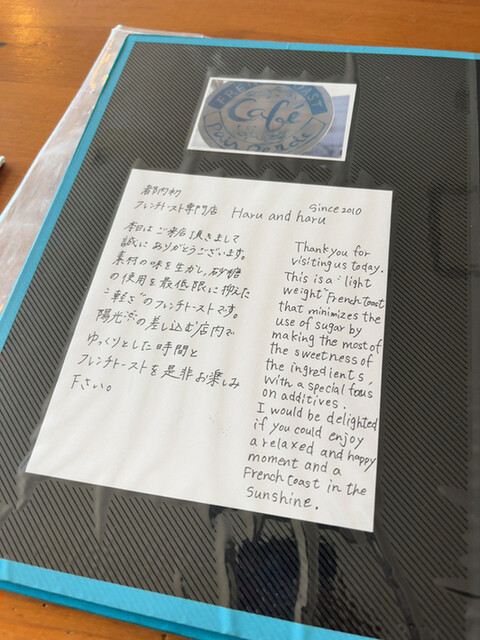 FRENCH TOAST
Café
Pain Perdu
都内初
フレンチトースト専門店
Haru and haru
Since 2010
本日はご来店頂きまして
誠にありがとうございます。
素材の味を生かし、砂糖
の使用を最低限に抑えた
"軽さ"のフレンチトーストです。
陽光の差し込む店内で
ゆっくりとした時間と
フレンチトーストを是非お楽しみ
下さい。
Thank you for
visiting us today.
This is a "light
weight" French toast
that minimizes the
use of sugar by
making the most of
the sweetness of
the ingredients,
with a special focus
on additives.
I would be delighted
if you could enjoy
a relaxed and happy
moment and a
French toast in the
sunshine.